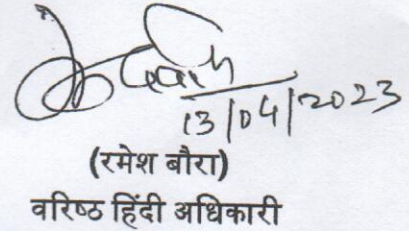 13/04/2023
(रमेश बौरा)
वरिष्ठ हिंदी अधिकारी